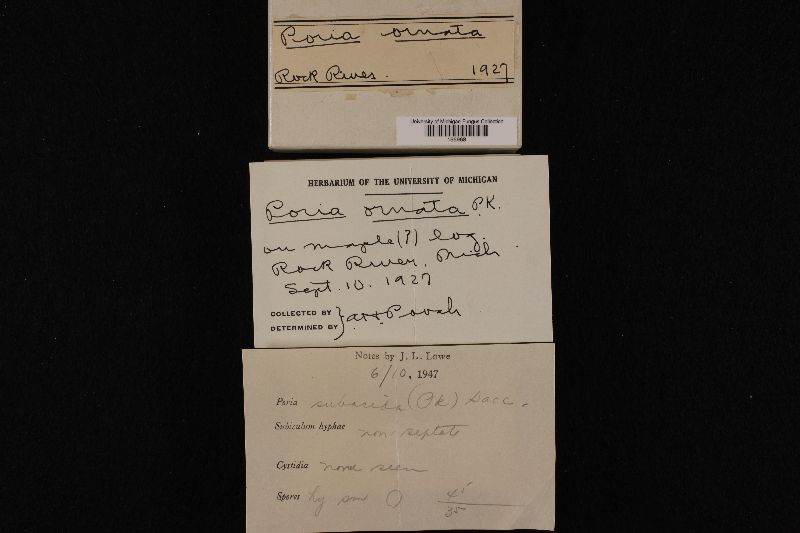 Poria ornata
Rock River. 1927
University of Michigan Fungus Collection
HERBARIUM OF THE UNIVERSITY OF MICHIGAN
Poria ornata P.K.
on maple(?) log.
Rock River, Mich.
Sept. 10. 1927
COLLECTED BY
DETERMINED BY } Povah
Notes by J. L. Lowe
6/10, 1947
Poria subacida (Pk) Sacc.
Subiculum hyphae non septate
Cystidia none seen
Spores hy sm O 45
35